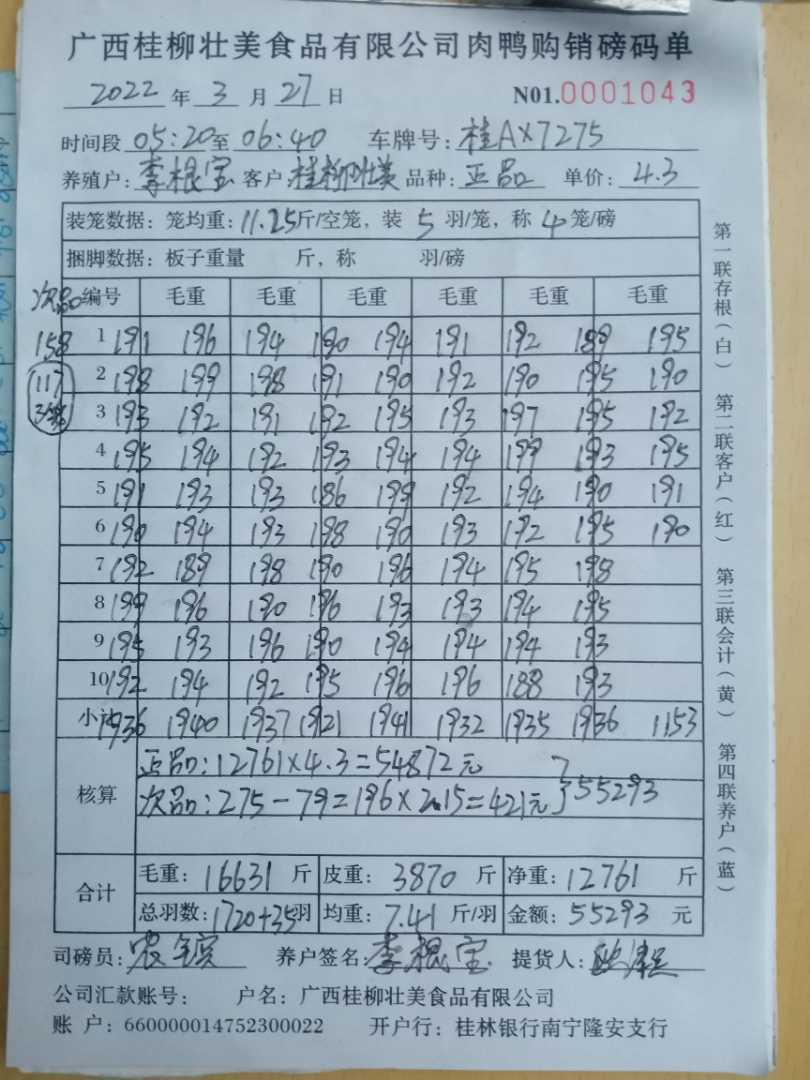 广西桂柳壮美食品有限公司肉鸭购销磅码单
2022 年 3 月 27 日 N01.0001043
时间段 05:20 至 06:40 车牌号: 桂AX7275
养殖户: 李根宝 客户: 桂柳壮美 品种: 正品 单价: 4.3
装笼数据: 笼均重: 11.25斤/空笼, 装 5 羽/笼, 称 4 笼/磅
捆脚数据: 板子重量 斤, 称 羽/磅
次品 编号 毛重 毛重 毛重 毛重 毛重 毛重
158 1 191 196 194 190 194 191 192 189 195
117 2 198 199 198 191 190 192 190 195 190
3 193 192 191 192 195 193 197 195 192
4 195 194 192 193 194 194 199 193 195
5 191 193 193 186 199 192 194 190 191
6 190 194 193 198 190 193 192 195 190
7 192 189 198 190 196 194 195 198
8 199 196 190 196 193 193 194 195
9 195 193 196 190 194 194 194 193
10 192 194 192 195 196 196 188 193
小计 1936 1940 1937 1921 1941 1932 1935 1936 1153
核算
正品: 12761×4.3=54872元
次品: 275-79=196×2.15=421元 } 55293
合计
毛重: 16631 斤 皮重: 3870 斤 净重: 12761 斤
总羽数: 1720+35羽 均重: 7.41 斤/羽 金额: 55293 元
司磅员: 农 养户签名: 李根宝 提货人:
公司汇款账号: 户名: 广西桂柳壮美食品有限公司
账 户: 660000014752300022 开户行: 桂林银行南宁隆安支行
第一联存根(白) 第二联客户(红) 第三联会计(黄) 第四联养户(蓝)